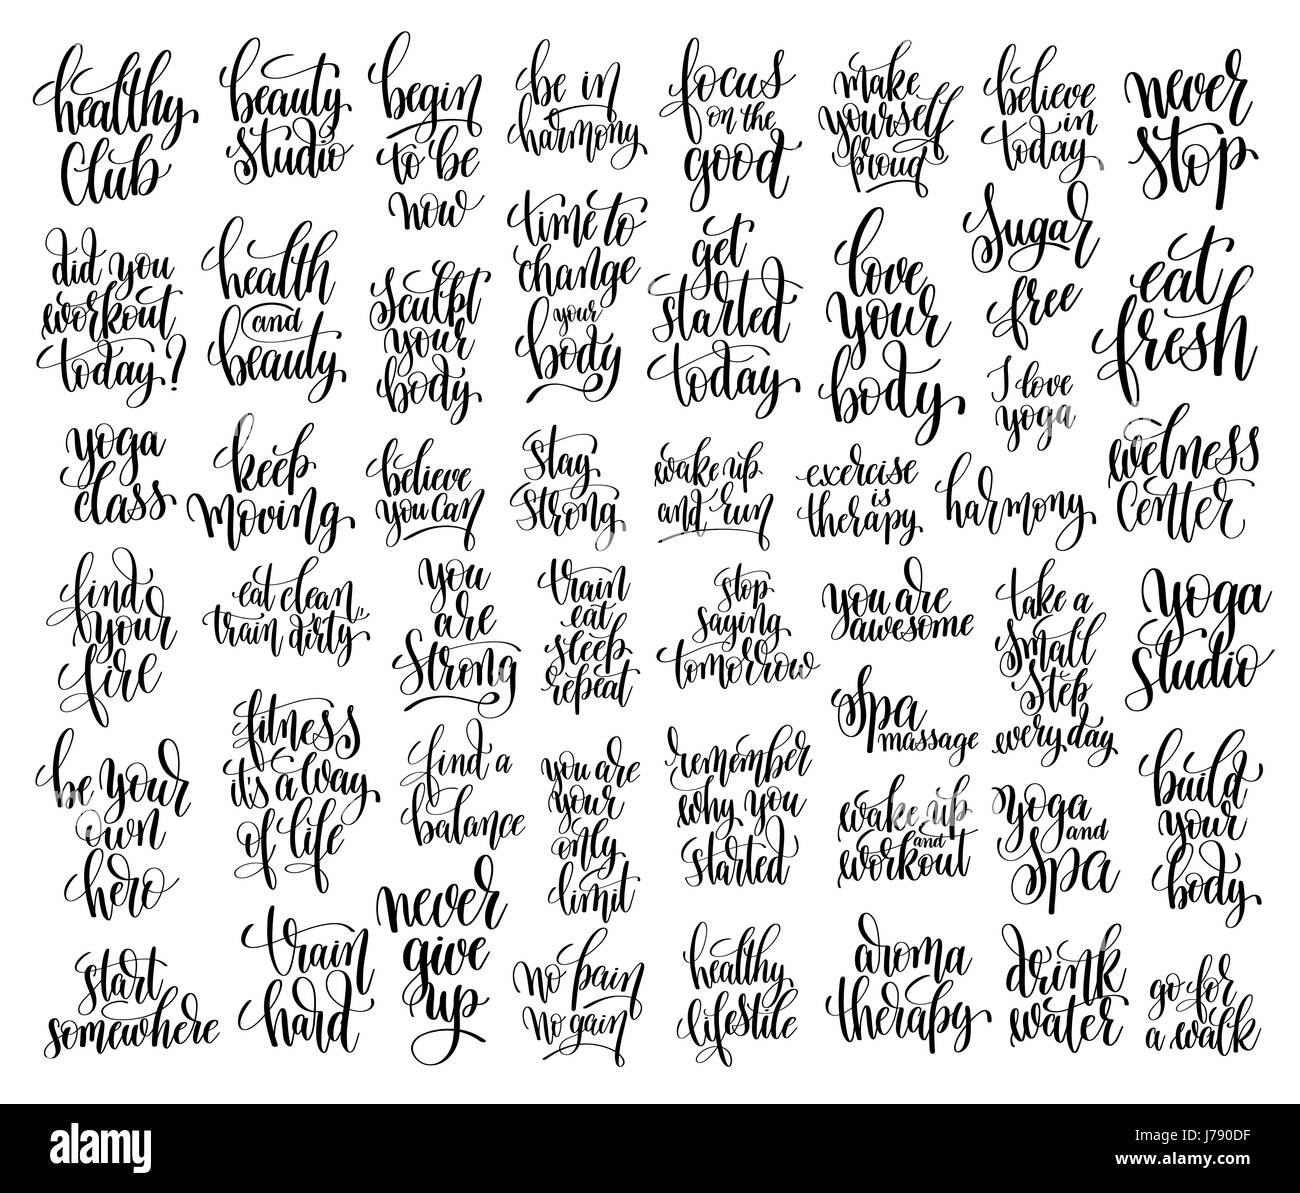 healthy
Club
beauty
studio
begin
to be
now
be in
harmony
focus
on the
good
make
yourself
proud
believe
in
today
never
stop
did you
workout
today?
health
and
beauty
sculpt
your
body
time to
change
your
body
get
started
today
love
your
body
Sugar
free
I love
yoga
eat
fresh
yoga
class
keep
moving
believe
you can
stay
strong
wake up
and run
exercise
is
therapy
harmony
welness
center
find
your
fire
eat clean
train dirty
you
are
strong
train
eat
sleep
repeat
stop
saying
tomorrow
you are
awesome
take a
small
step
every day
yoga
studio
be your
own
hero
fitness
it's a way
of life
find a
balance
you are
your
only
limit
remember
why you
started
Spa
massage
wake up
and
workout
yoga
and
Spa
build
your
body
start
somewhere
train
hard
never
give
up
no pain
no gain
healthy
lifestile
aroma
therapy
drink
water
go for
a walk
alamy
Image ID: J790DF
www.alamy.com